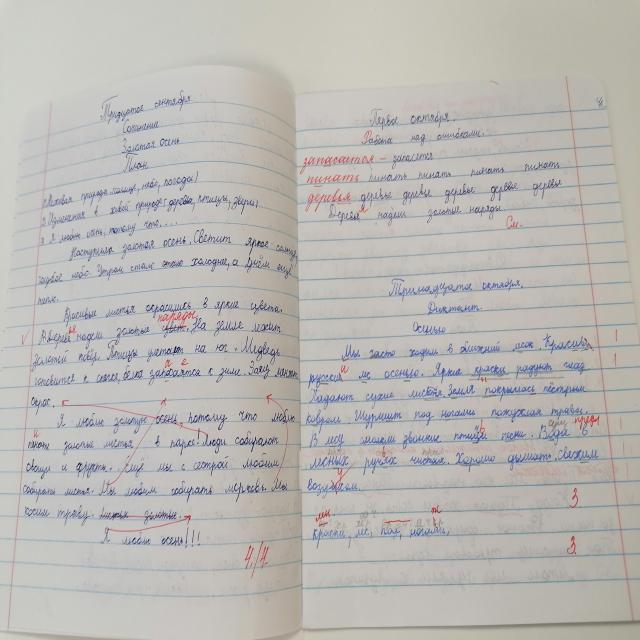 Тридцатое сентября.
Сочинение
Золотая осень
План
1. Неживая природа (солнце, небо, погода)
2. Изменения в живой природе (деревья, птицы, звери)
3. Я люблю осень, потому что....
Наступила золотая осень. Светит яркое солнце,
голубое небо. Утром стало холоднее, а днём ещё
тепло.
Красивые листья окрасились в яркие цвета.
наряды
Деревья надели золотые На земле лежит
золотой ковёр. Птицы улетают на юг. Медведь
готовится к спячке, белка к зиме. Заяц меняет
окрас.
Я люблю золотую осень, потому что люблю
золотые листья в парке! Люди собирают
овощи и фрукты. Ещё мы с сестрой любим
собирать листья. Мы любим собирать морковь. Мы
косим траву. листья золотые.
Я люблю осень!!!
4/4
Первое октября.
Работа над ошибками.
запасается – запасется
пинать пинать пинать пинать пинать
деревья деревье деревье деревье деревье деревья
Деревья надели золотые наряды.
См.
Тринадцатое октября.
Диктант.
Осенью
Мы часто ходим в ближний лес. Красив
русский лес осенью. Яркие краски радуют глаз
Падают сухие листья. Земля покрылась пёстрым
ковром. Шуршит под ногами пожухлая трава.
В лесу смолкли звонкие птицы песни. Вода в
лесных ручьях чистая. Хорошо дышать свежим
воздухом.
3
3